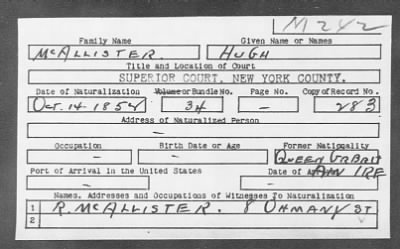 M242
Family Name Given Name or Names
McALLISTER. HUGH
Title and Location of Court
SUPERIOR COURT, NEW YORK COUNTY.
Date of Naturalization Volume or Bundle No. Page No. Copy of Record No.
Oct. 14 1854 34 — 283
Address of Naturalized Person
—
Occupation Birth Date or Age Former Nationality
— — QUEEN GR BRIT
Port of Arrival in the United States Date of AN IRE
— —
Names, Addresses and Occupations of Witnesses To Naturalization
1 R. McALLISTER. 8 ST
2